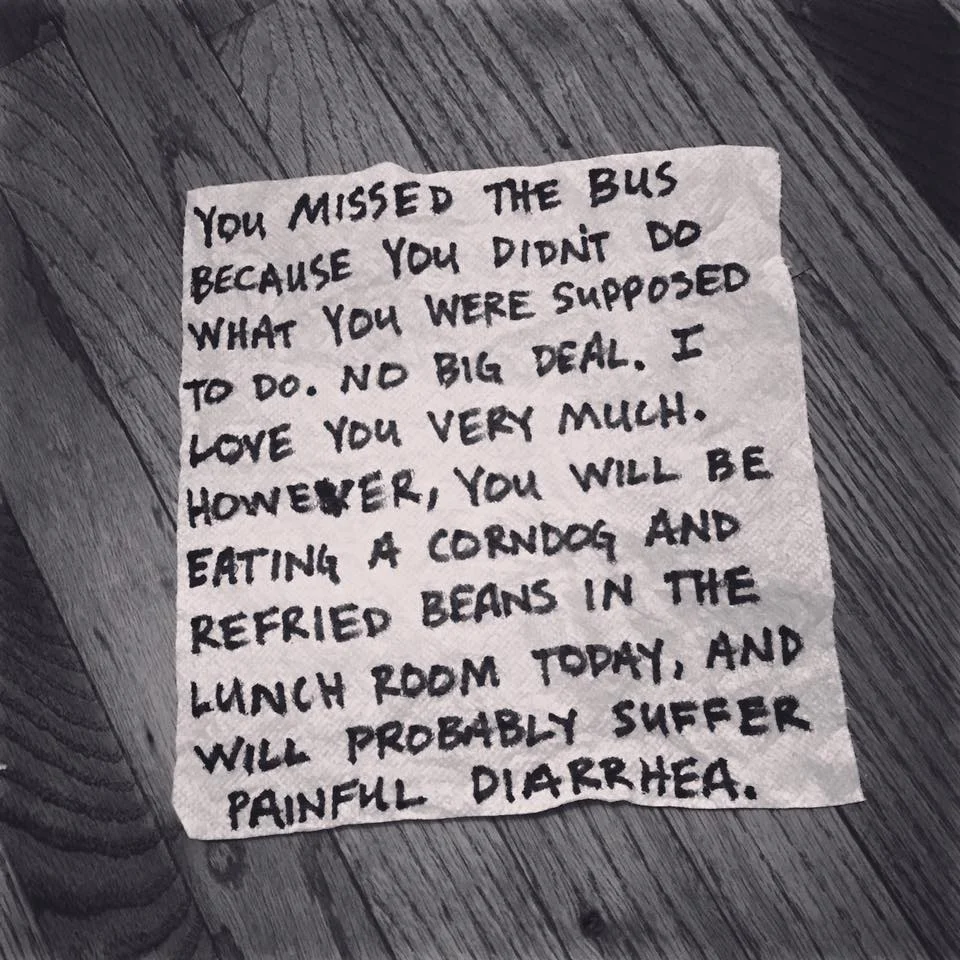 YOU MISSED THE BUS
BECAUSE YOU DIDN'T DO
WHAT YOU WERE SUPPOSED
TO DO. NO BIG DEAL. I
LOVE YOU VERY MUCH.
HOWEVER, YOU WILL BE
EATING A CORNDOG AND
REFRIED BEANS IN THE
LUNCH ROOM TODAY, AND
WILL PROBABLY SUFFER
PAINFUL DIARRHEA.